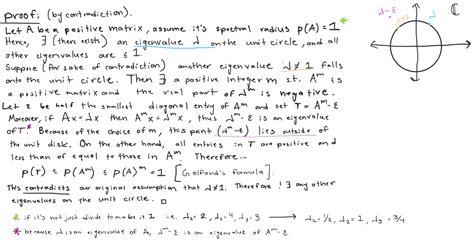 proof: (by contradiction).
Let A be a positive matrix, assume it's spectral radius ρ(A)=1 *
Hence, ∃ (there exists) an eigenvalue λ on the unit circle, and all
other eigenvalues are ≤ 1.
Suppose (for sake of contradiction) another eigenvalue λ≠1 falls
onto the unit circle. Then ∃ a positive integer m st. Aᵐ is
a positive matrix and the real part of λᵐ is negative.
Let ε be half the smallest diagonal entry of Aᵐ and set T = Aᵐ-ε
Moreover, if Ax=λx then Aᵐx = λᵐx, thus λᵐ-ε is an eigenvalue
of T* Because of the choice of m, this point (λᵐ-ε) lies outside of
the unit disk. On the other hand, all entries in T are positive and
less than or equal to those in Aᵐ. Therefore...
ρ(T) ≤ ρ(Aᵐ) ≤ ρ(A)ᵐ = 1 [Gelfand's formula].
This contradicts our original assumption that λ≠1. Therefore ∄ any other
eigenvalues on the unit circle. □
* if it's not just divide to make it 1 i.e. λ₁=2, λ₂=4, λ₃=3 → λ₁=1/2, λ₂=1, λ₃=3/4
* because λ is an eigenvalue of A, λᵐ-ε is an eigenvalue of Aᵐ-ε.
λ-ε
λ
ℂ